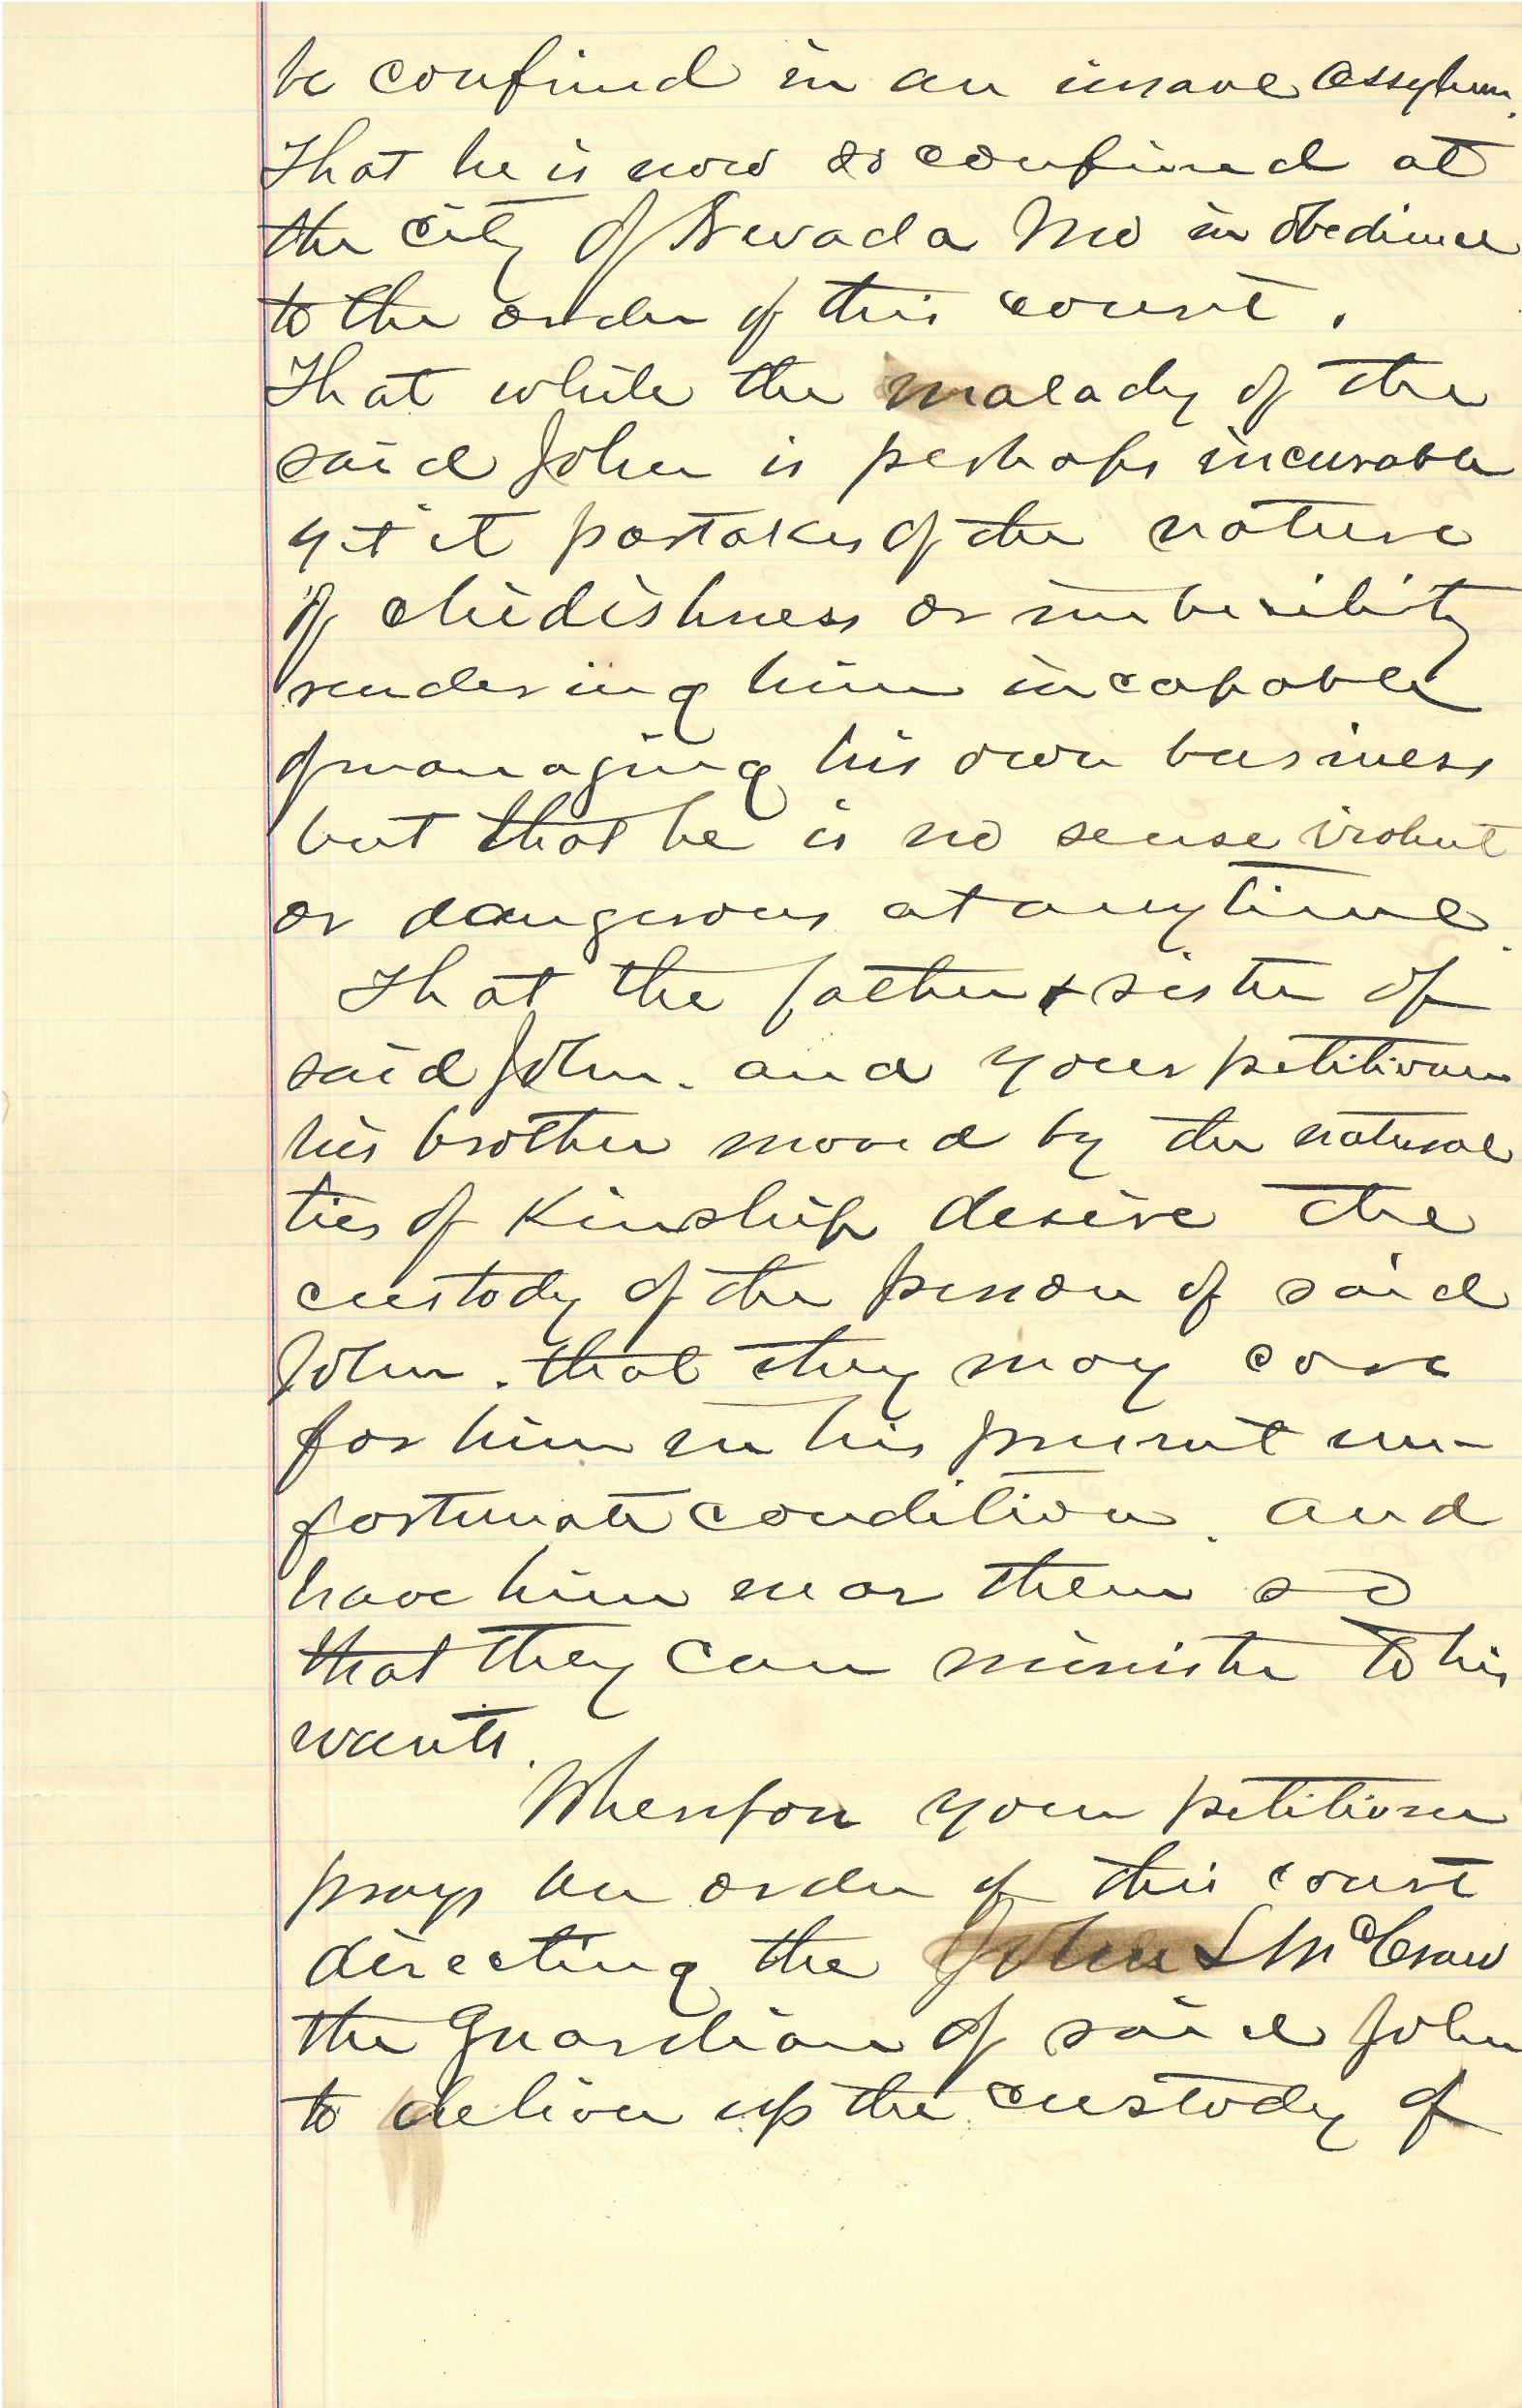 be confined in an insane Assylum.
That he is now so confined at
the City of Nevada Mo in obedience
to the order of this court.
That while the malady of the
said John is perhaps incurable
yet it partakes of the nature
of childishness or imbecility
rendering him incapable
of managing his own business
but that he is no sense violent
or dangerous at any time.
That the father & sister of
said John. and your petitioner
his brother moved by the natural
ties of Kinship desire the
custody of the person of said
John. that they may care
for him in his present un-
fortunate condition. and
have him near them so
that they can minister to his
wants.
Wherefore your petitioner
prays an order of this court
directing the John L McCraw
the Guardian of said John
to deliver up the custody of